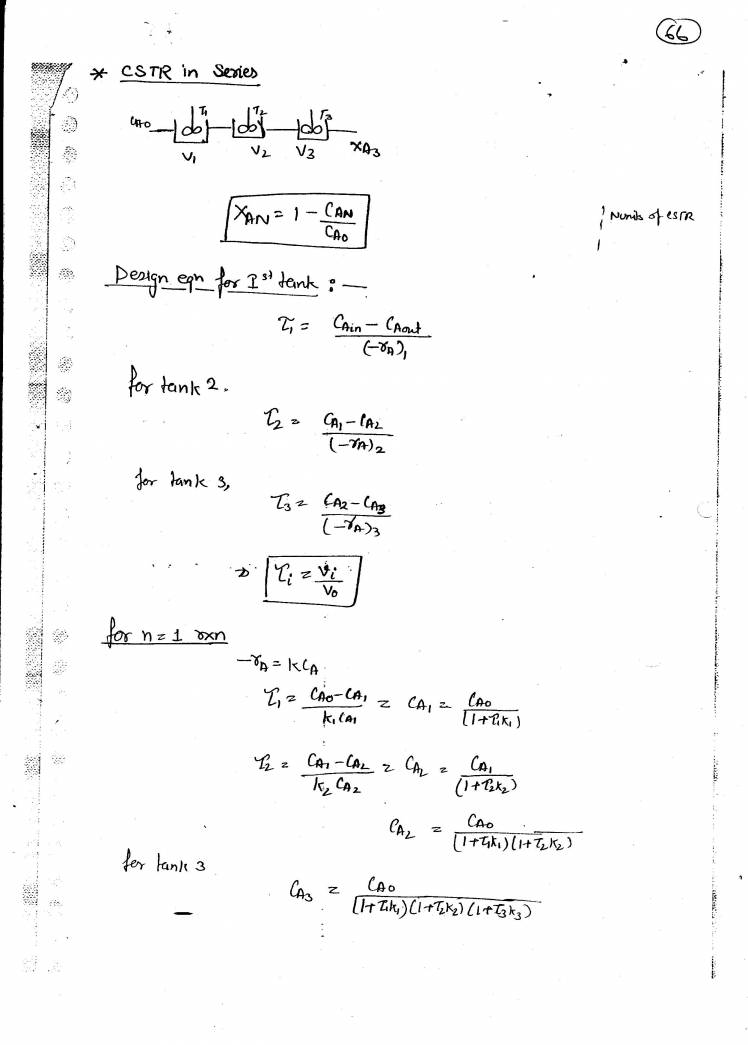 66
* CSTR in Series
CA0 T1 T2 T3
V1 V2 V3 XA3
XAN = 1 - CAN/CA0
Design eqn for Ist tank : —
τ1 = (CAin - CAout)/(-rA)1
for tank 2.
τ2 = (CA1 - CA2)/(-rA)2
for tank 3,
τ3 = (CA2 - CA3)/(-rA)3
⇒ τi = Vi/V0
for n=1 rxn
-rA = KCA
τ1 = (CA0 - CA1)/(K1CA1) = CA1 = CA0/[1+τ1K1)
τ2 = (CA1 - CA2)/(K2CA2) = CA2 = CA1/(1+τ2K2)
CA2 = CA0/[1+τ1K1)(1+τ2K2)
for tank 3
CA3 = CA0/[1+τ1K1)(1+τ2K2)(1+τ3K3)